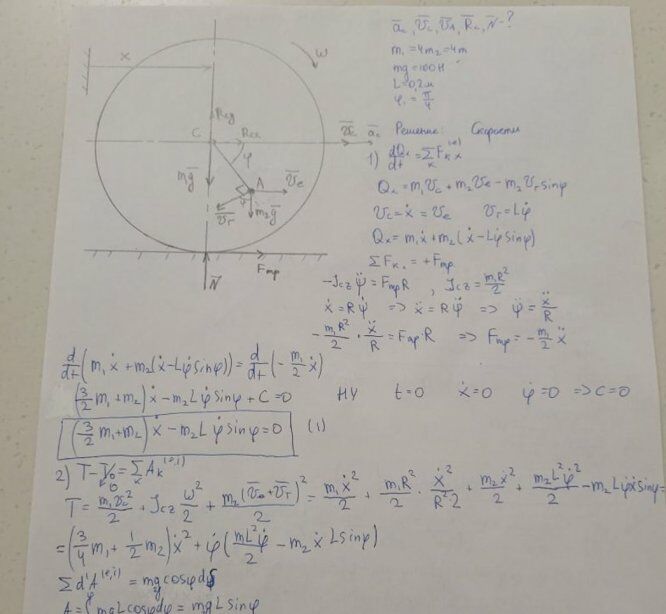 ā_c, V̄_c, V̄_A, R̄_c, N̄ - ?
m₁ = 4m₂ = 4m
mg = 100H
L = 0,2м
φ₁ = π/4
x
ω
R_cy
C
R_cx
V̄_c
ā_c
φ
A
V̄_e
m̄g
V̄_r
m₂ḡ
F_тр
N̄
Решение: Скорости
1) dQ_x/dt = Σ_K F_K x^(e)
Q_x = m₁V_c + m₂V_e - m₂V_r sinφ
V_c = ẋ = V_e V_r = Lφ̇
Q_x = m₁ẋ + m₂(ẋ - Lφ̇ sinφ)
ΣF_Kx = +F_тр
-J_cz ψ̈ = F_тр R , J_cz = m₁R²/2
ẋ = Rψ̇ => ẍ = Rψ̈ => ψ̈ = ẍ/R
-m₁R²/2 · ẍ/R = F_тр·R => F_тр = -m₁/2 ẍ
d/dt (m₁ẋ + m₂(ẋ - Lφ̇ sinφ)) = d/dt (-m₁/2 ẋ)
(3/2 m₁ + m₂)ẋ - m₂Lφ̇ sinφ + C = 0 НУ t=0 ẋ=0 φ̇=0 => C=0
(3/2 m₁ + m₂)ẋ - m₂Lφ̇ sinφ = 0 (1)
2) T - T₀ = Σ_K A_K^(e,i)
0
T = m₁V_c²/2 + J_cz ω²/2 + m₂(V̄_e + V̄_r)²/2 = m₁ẋ²/2 + m₁R²/2 · ẋ²/R²2 + m₂ẋ²/2 + m₂L²φ̇²/2 - m₂Lφ̇ẋ sinφ =
= (3/4 m₁ + 1/2 m₂)ẋ² + φ̇(mL²φ̇/2 - m₂ẋL sinφ)
Σd'A^(e,i) = mg cosφ dφ
A = ∫ mgL cosφ dφ = mgL sinφ